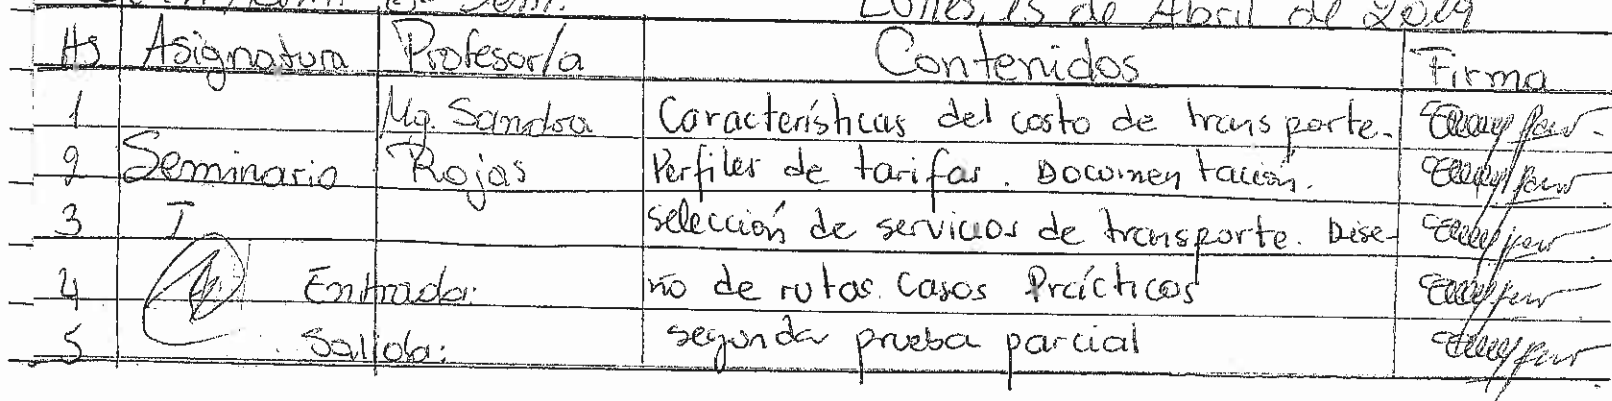 Lunes, 15 de Abril de 2019
Hs Asignatura Profesor/a Contenidos Firma
1 Mg. Sandra Características del costo de transporte.
2 Seminario Rojas Perfiles de tarifas. Documentación.
3 I selección de servicios de transporte. Dise-
4 Entrada: ño de rutas. Casos Prácticos
5 Salida: segunda prueba parcial